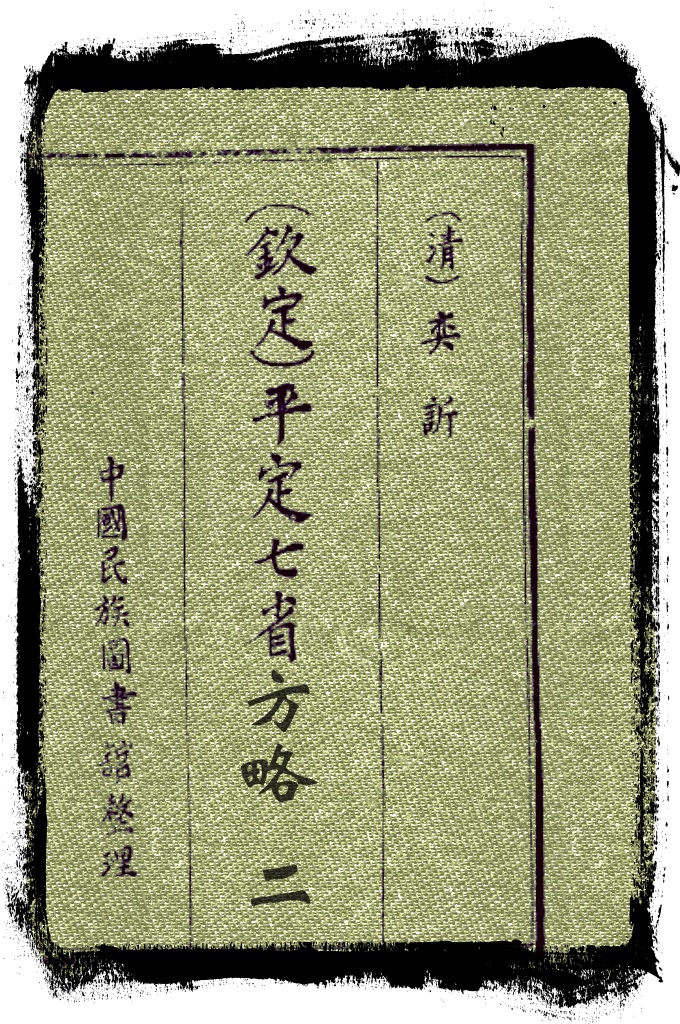 (清)奕訢
(欽定)平定七省方略 二
中國民族圖書館整理